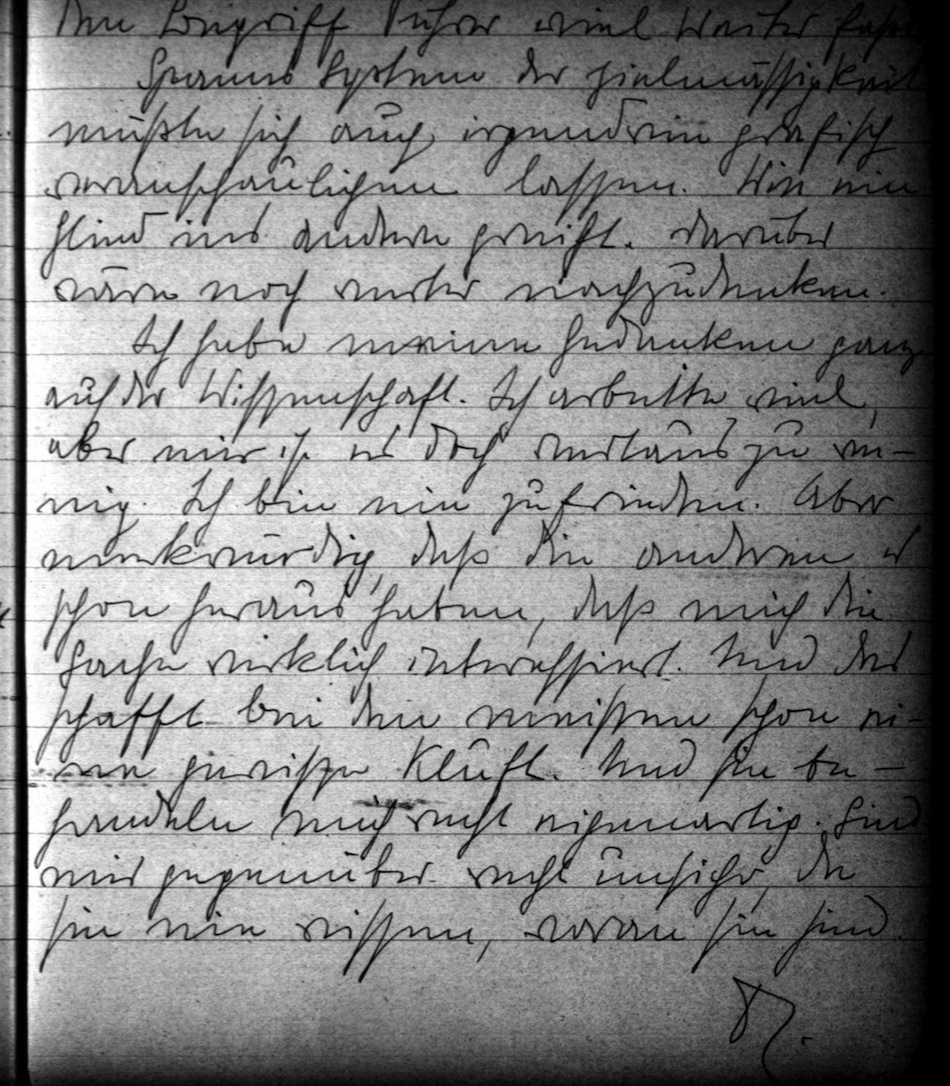 den Begriff Führer viel weiter fassen
Spanns System der Zielmässigkeit
müßte sich auch irgendwie grafisch
veranschaulichen lassen. Wie ein
Glied ins andere greift. Darüber
wäre noch weiter nachzudenken.
Ich habe meine Gedanken ganz
auf der Wissenschaft. Ich arbeite viel,
aber mir ist es doch durchaus zu we-
nig. Ich bin nie zufrieden. Aber
merkwürdig, daß die anderen es
schon heraus haben, daß mich die
Sache wirklich interessiert. Und das
schafft bei den meisten schon ei-
ne gewisse Kluft. Und sie be-
handeln mich recht eigenartig. Sind
mir gegenüber recht unsicher, da
sie nie wissen, woran sie sind.